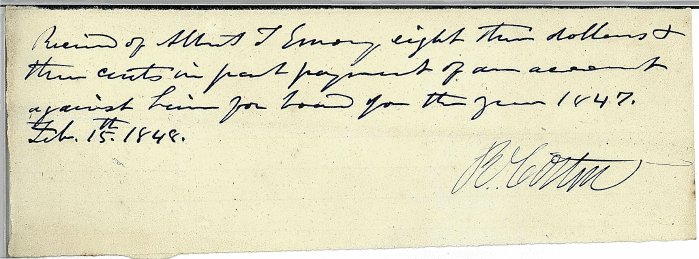 Received of Albert T Emory eight three dollars &
three cents in part payment of an account
against him for board for the year 1847.
Feb. 15th 1848.
B. Cotton